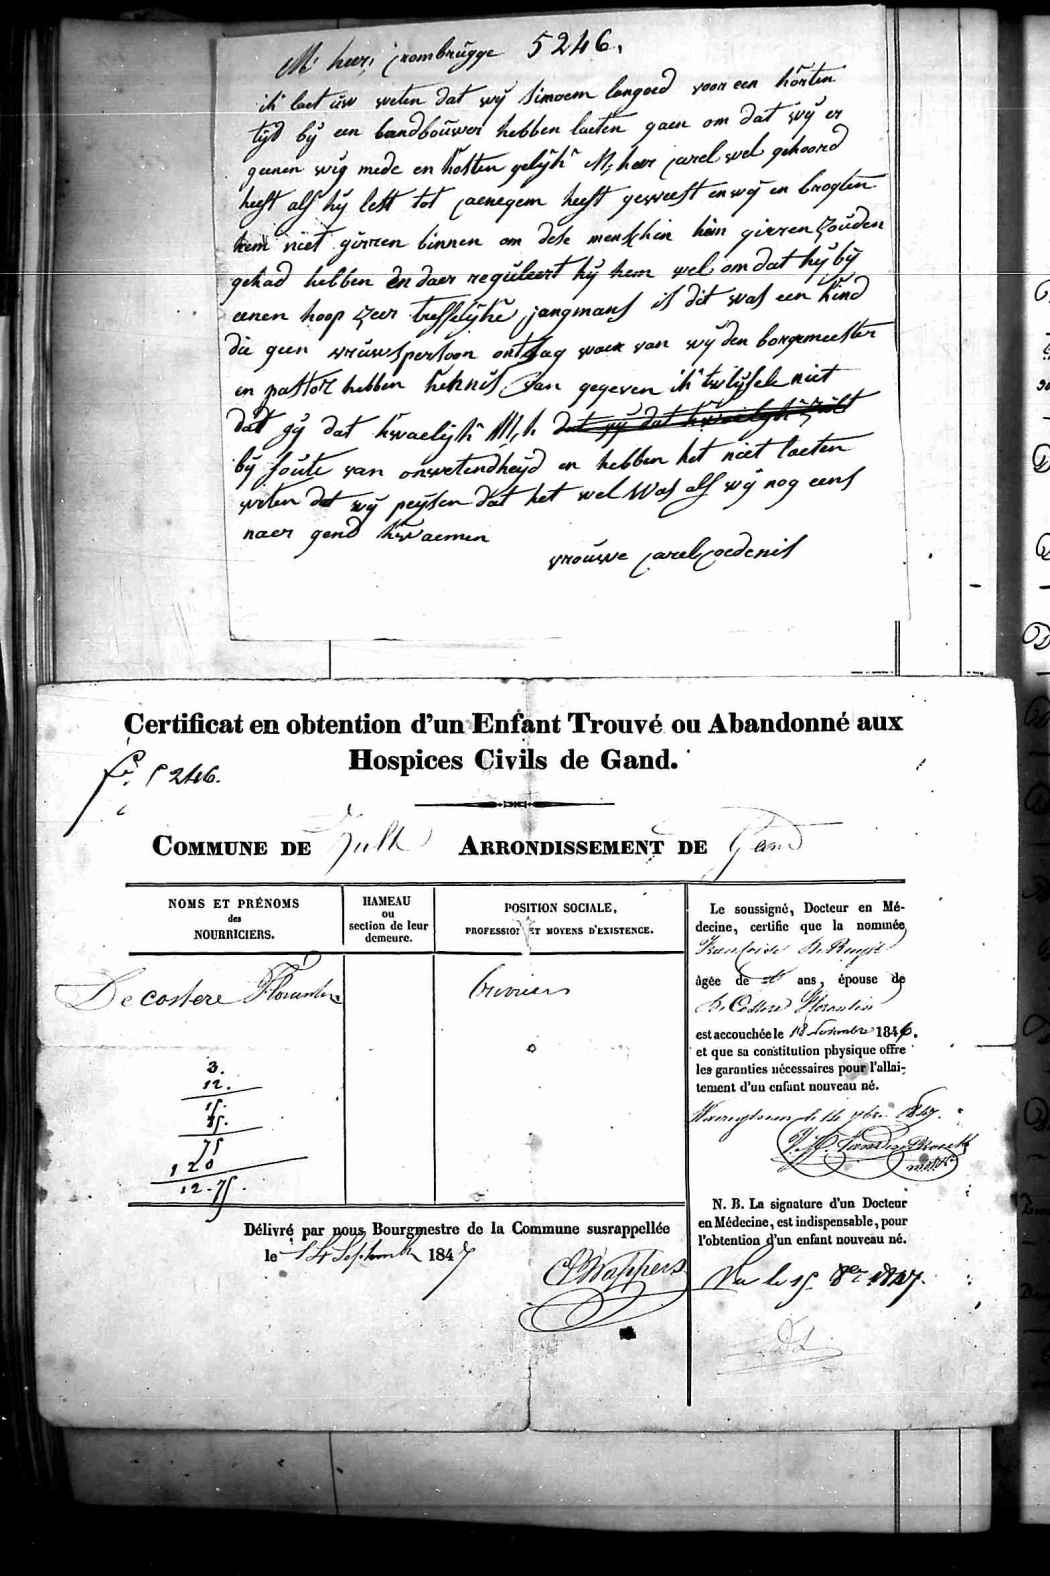 Mr heer, Crombrugge 5246.
ik laet uw weten dat wy Simoen langoed voor een korten
tyd by een landbouwer hebben laeten gaen om dat wy er
geenen weg mede en kosten gelyk Mr heer Carel wel gehoord
heeft als hy lest tot Caenegem heeft geweest en wy en brogten
hem niet binnen om dese menschen hem zouden
gehad hebben En daer reguleert hy hem wel om dat hy by
eenen hoop zeer treffelyke jongmans is dit was een kind
die geen vrouwspersoon ontsag van wy den borgemeester
en pastor hebben kennis van gegeven ik twyfele niet
dat gy dat kwaelyk dat gy dat kwaelyk zult
by foute van onwetendheyd en hebben het niet laeten
weten dat wy peysen dat het wel was als wy nog eens
naer gend kwaemen
vrouwe Carel Coedenis
Certificat en obtention d'un Enfant Trouvé ou Abandonné aux
Hospices Civils de Gand.
5246.
COMMUNE DE Zulte ARRONDISSEMENT DE Gand
NOMS ET PRÉNOMS
des
NOURRICIERS.
HAMEAU
ou
section de leur
demeure.
POSITION SOCIALE,
PROFESSION ET MOYENS D'EXISTENCE.
Decostere Florentin
3.
12.
15.
75
120
12.75.
Le soussigné, Docteur en Mé-
decine, certifie que la nommée
De Ruyck
âgée de ans, épouse de
De Costere Florentin
est accouchée le 18 1846.
et que sa constitution physique offre
les garanties nécessaires pour l'allai-
tement d'un enfant nouveau né.
le 14 7bre 1847.
N. B. La signature d'un Docteur
en Médecine, est indispensable, pour
l'obtention d'un enfant nouveau né.
Vu le 15 8er 1847.
Délivré par nous Bourgmestre de la Commune susrappellée
le 14 Septembre 1847
Wappers